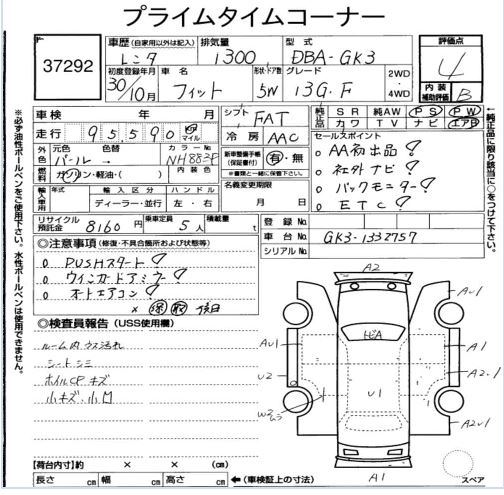 プライムタイムコーナー
37292
車歴 (自家用以外は記入) レンタ
排気量 1300
型式 DBA-GK3
評価点 4
初度登録年月 30年10月
車名 フィット
形状・ドア数 5W
グレード 13G.F
2WD 4WD
内装補助評価 B
車検 年 月
シフト FAT
純正品 SR 純AW PS PW
革 カワ TV ナビ エアB
走行 95,590 km マイル
冷房 AAC
セールスポイント
AA初出品!
社外ナビ!
バックモニター!
ETC!
外色 元色 パール 色替
カラーNo NH883P
内装色
燃料 ガソリン・軽油・( )
新車整備手帳(保証書付) 有・無
※記録簿と一緒に保管下さい。
輸入車用 年式 輸入区分 ディーラー・並行 ハンドル 左・右
名義変更期限 月 日
リサイクル預託金 8160 円
乗車定員 5 人
積載量 t
登録No
車台No GK3-1332757
シリアルNo
◎注意事項 (修復・不具合箇所および状態等)
PUSHスタート!
ウインカードアミラー!
オートエアコン!
× 保 取 後日
◎検査員報告 (USS使用欄)
ルーム内ウス汚れ
シートシミ
ホイルCPキズ
小キズ、小凹
A2
AU1
AU1
トビA
A1
U2
U1
A2.1
W2
ムラ
A2U1
A1
スペア
【荷台内寸】約 × × (cm)
長さ cm 幅 cm 高さ cm ←(車検証上の寸法)
※必ず油性ボールペンをご使用下さい。水性ボールペンは使用できません。
←純正品に限り該当に○をつけて下さい。